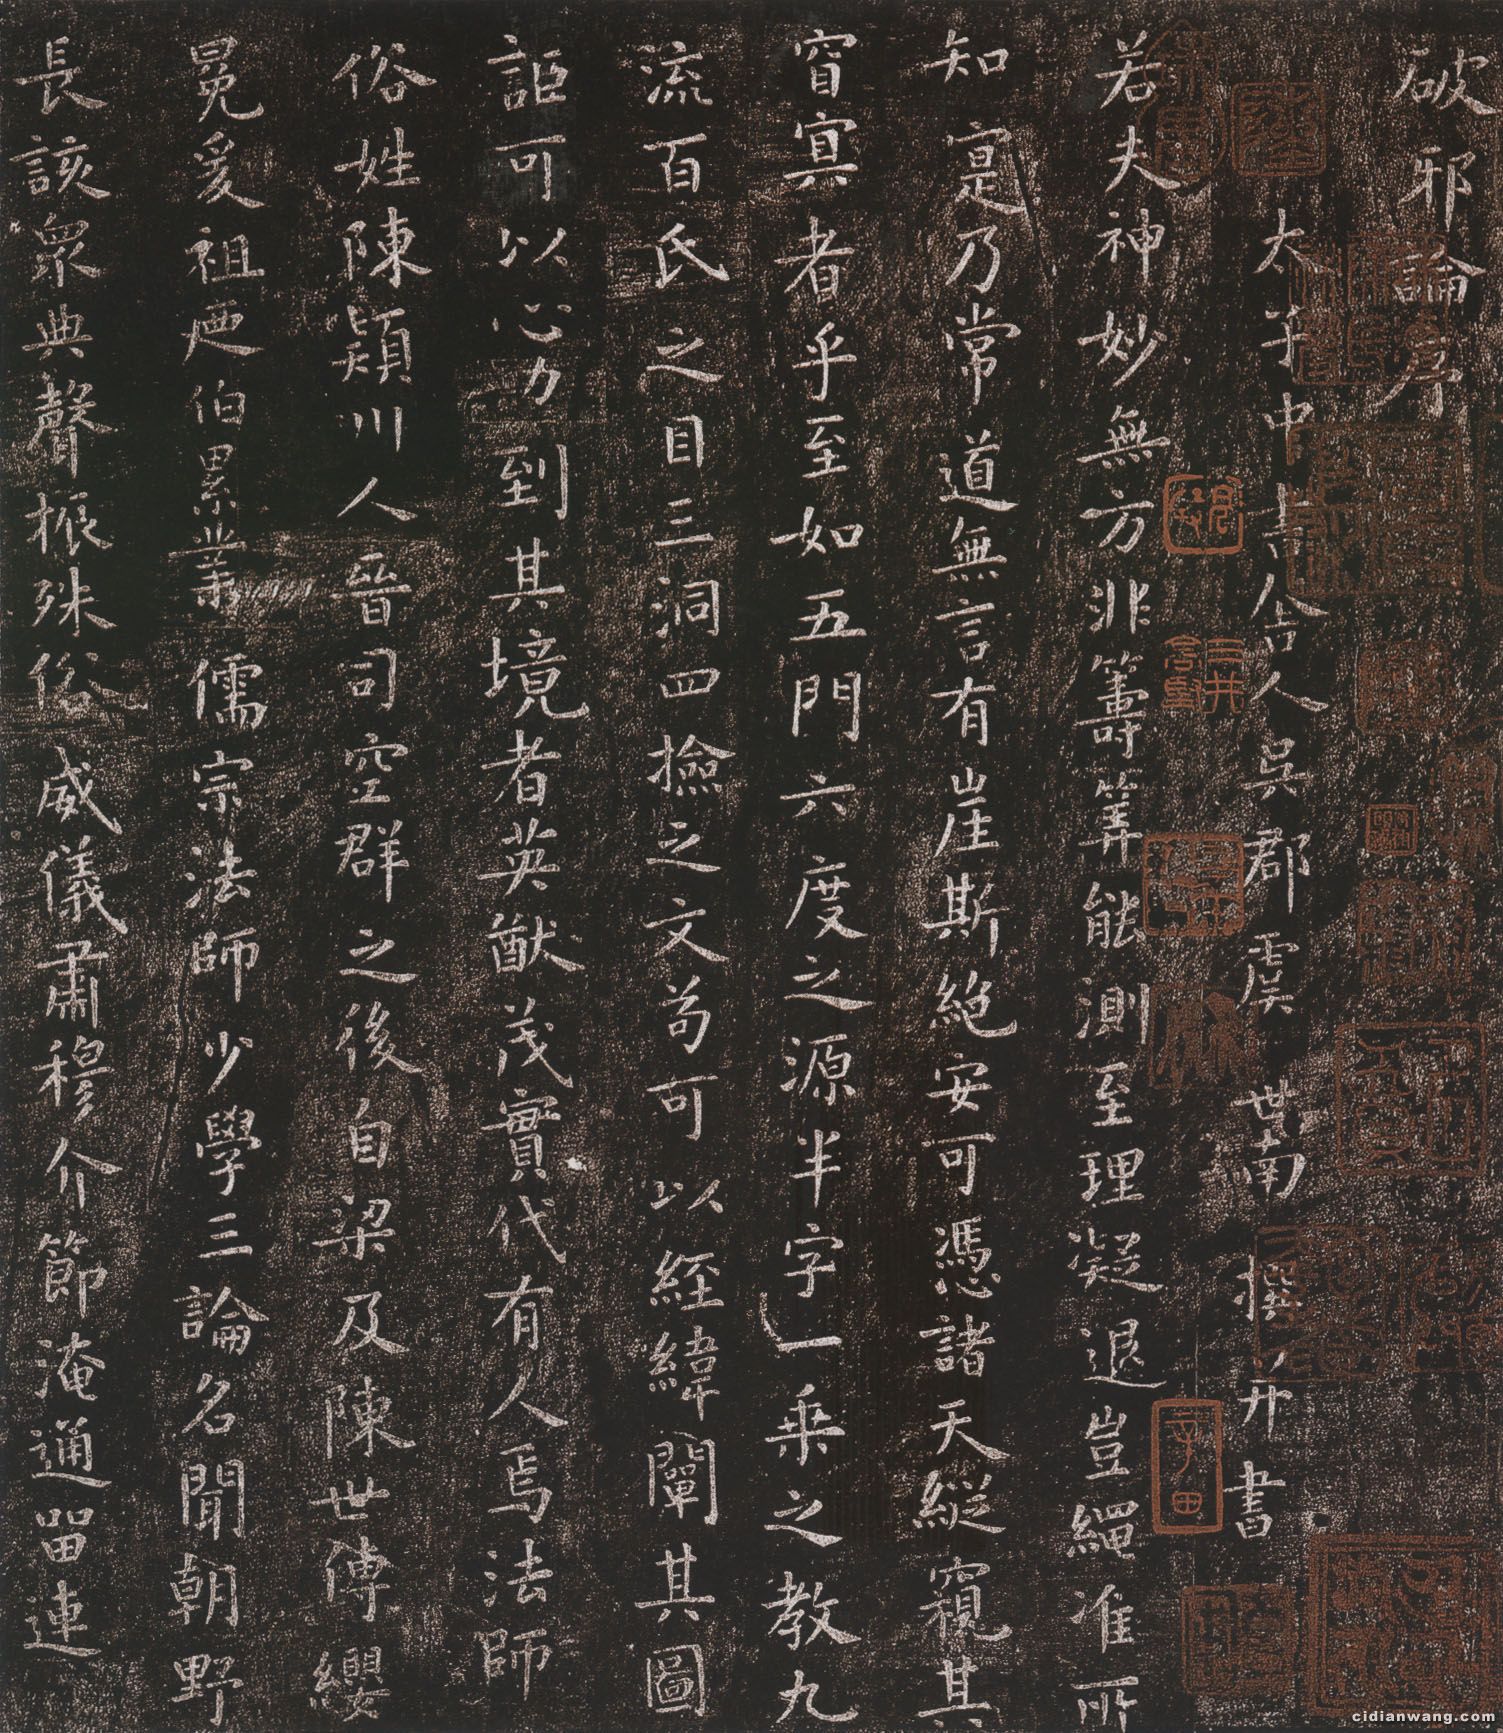 破邪論序
太子中書舍人吳郡虞世南撰并書
若夫神妙無方非籌筭能測至理凝退豈繩准所
知寔乃常道無言有崖斯絕安可憑諸天縱窺其
窅寘者乎至如五門六度之源半字一乘之教九
流百氏之目三洞四撿之文苟可以經緯闡其圖
詎可以心力到其境者英猷茂實代有人焉法師
俗姓陳潁川人晉司空群之後自梁及陳世傳纓
冕爰祖迺伯累業儒宗法師少學三論名聞朝野
長該眾典聲振殊俗威儀肅穆介節淹通留連
cidianwang.com